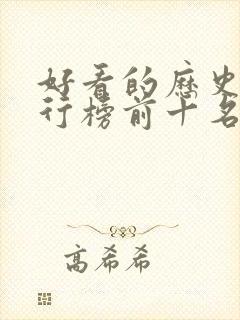 好看的历史
行榜前十名
高希希